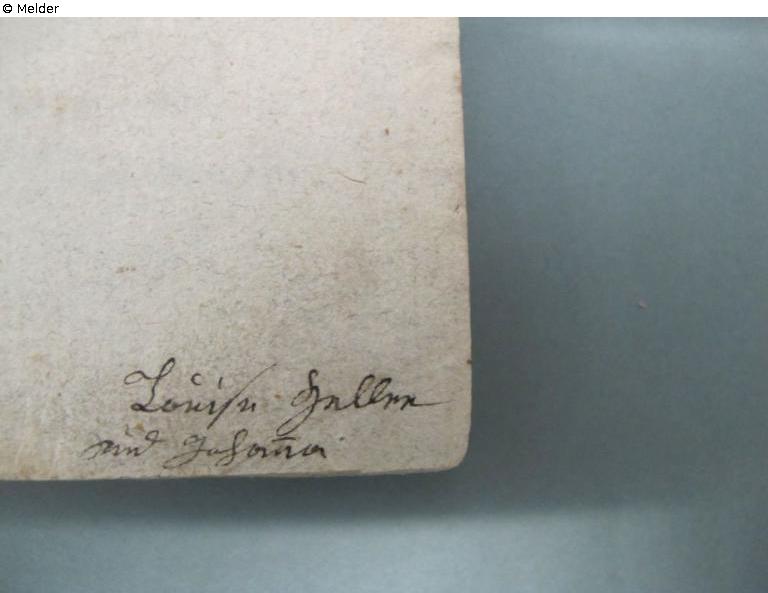 © Melder
Louise Heller
und Johanna